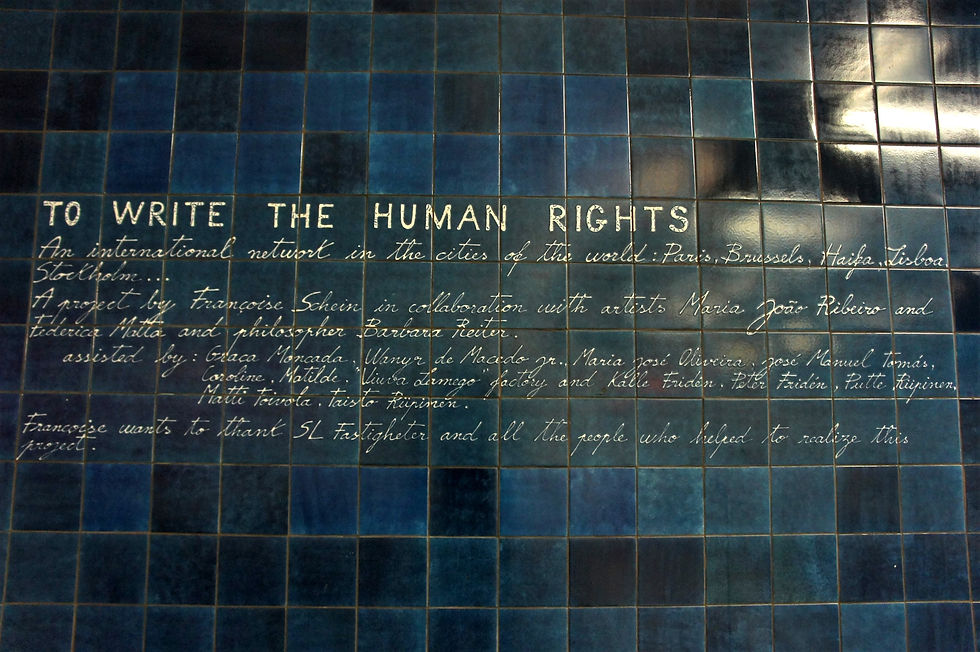 TO WRITE THE HUMAN RIGHTS
An international network in the cities of the world : Paris, Brussels, Haifa, Lisboa,
Stockholm...
A project by Françoise Schein in collaboration with artists Maria João Ribeiro and
Federica Matta and philosopher Barbara Reiter.
assisted by : Graça Moncada, Wanyr de Macedo jr., Maria José Oliveira, José Manuel Tomás,
Caroline, Matilde, "Viuva Lamego" factory and Kalle Fridén, Peter Fridén, Putte Riipinen,
Matti Toivola, Taisto Riipinen.
Françoise wants to thank SL Fastigheter and all the people who helped to realize this
project.